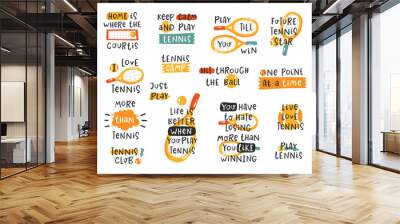 HOME IS
WHERE THE
COURT IS
KEEP CALM
AND PLAY
TENNIS
PLAY
TILL
YOU WIN
FUTURE
TENNIS
STAR
I LOVE
TENNIS
TENNIS
CAMP
HIT THROUGH
THE BALL
ONE POINT
AT a TIME
MORE
THAN
TENNIS
JUST
PLAY
LIFE IS
BETTER
WHEN
YOU PLAY
TENNIS
YOU HAVE
TO HATE
LOSING
MORE THAN
YOU LIKE
WINNING
LIVE
LOVE
TENNIS
TENNIS
CLUB
PLAY
TENNIS